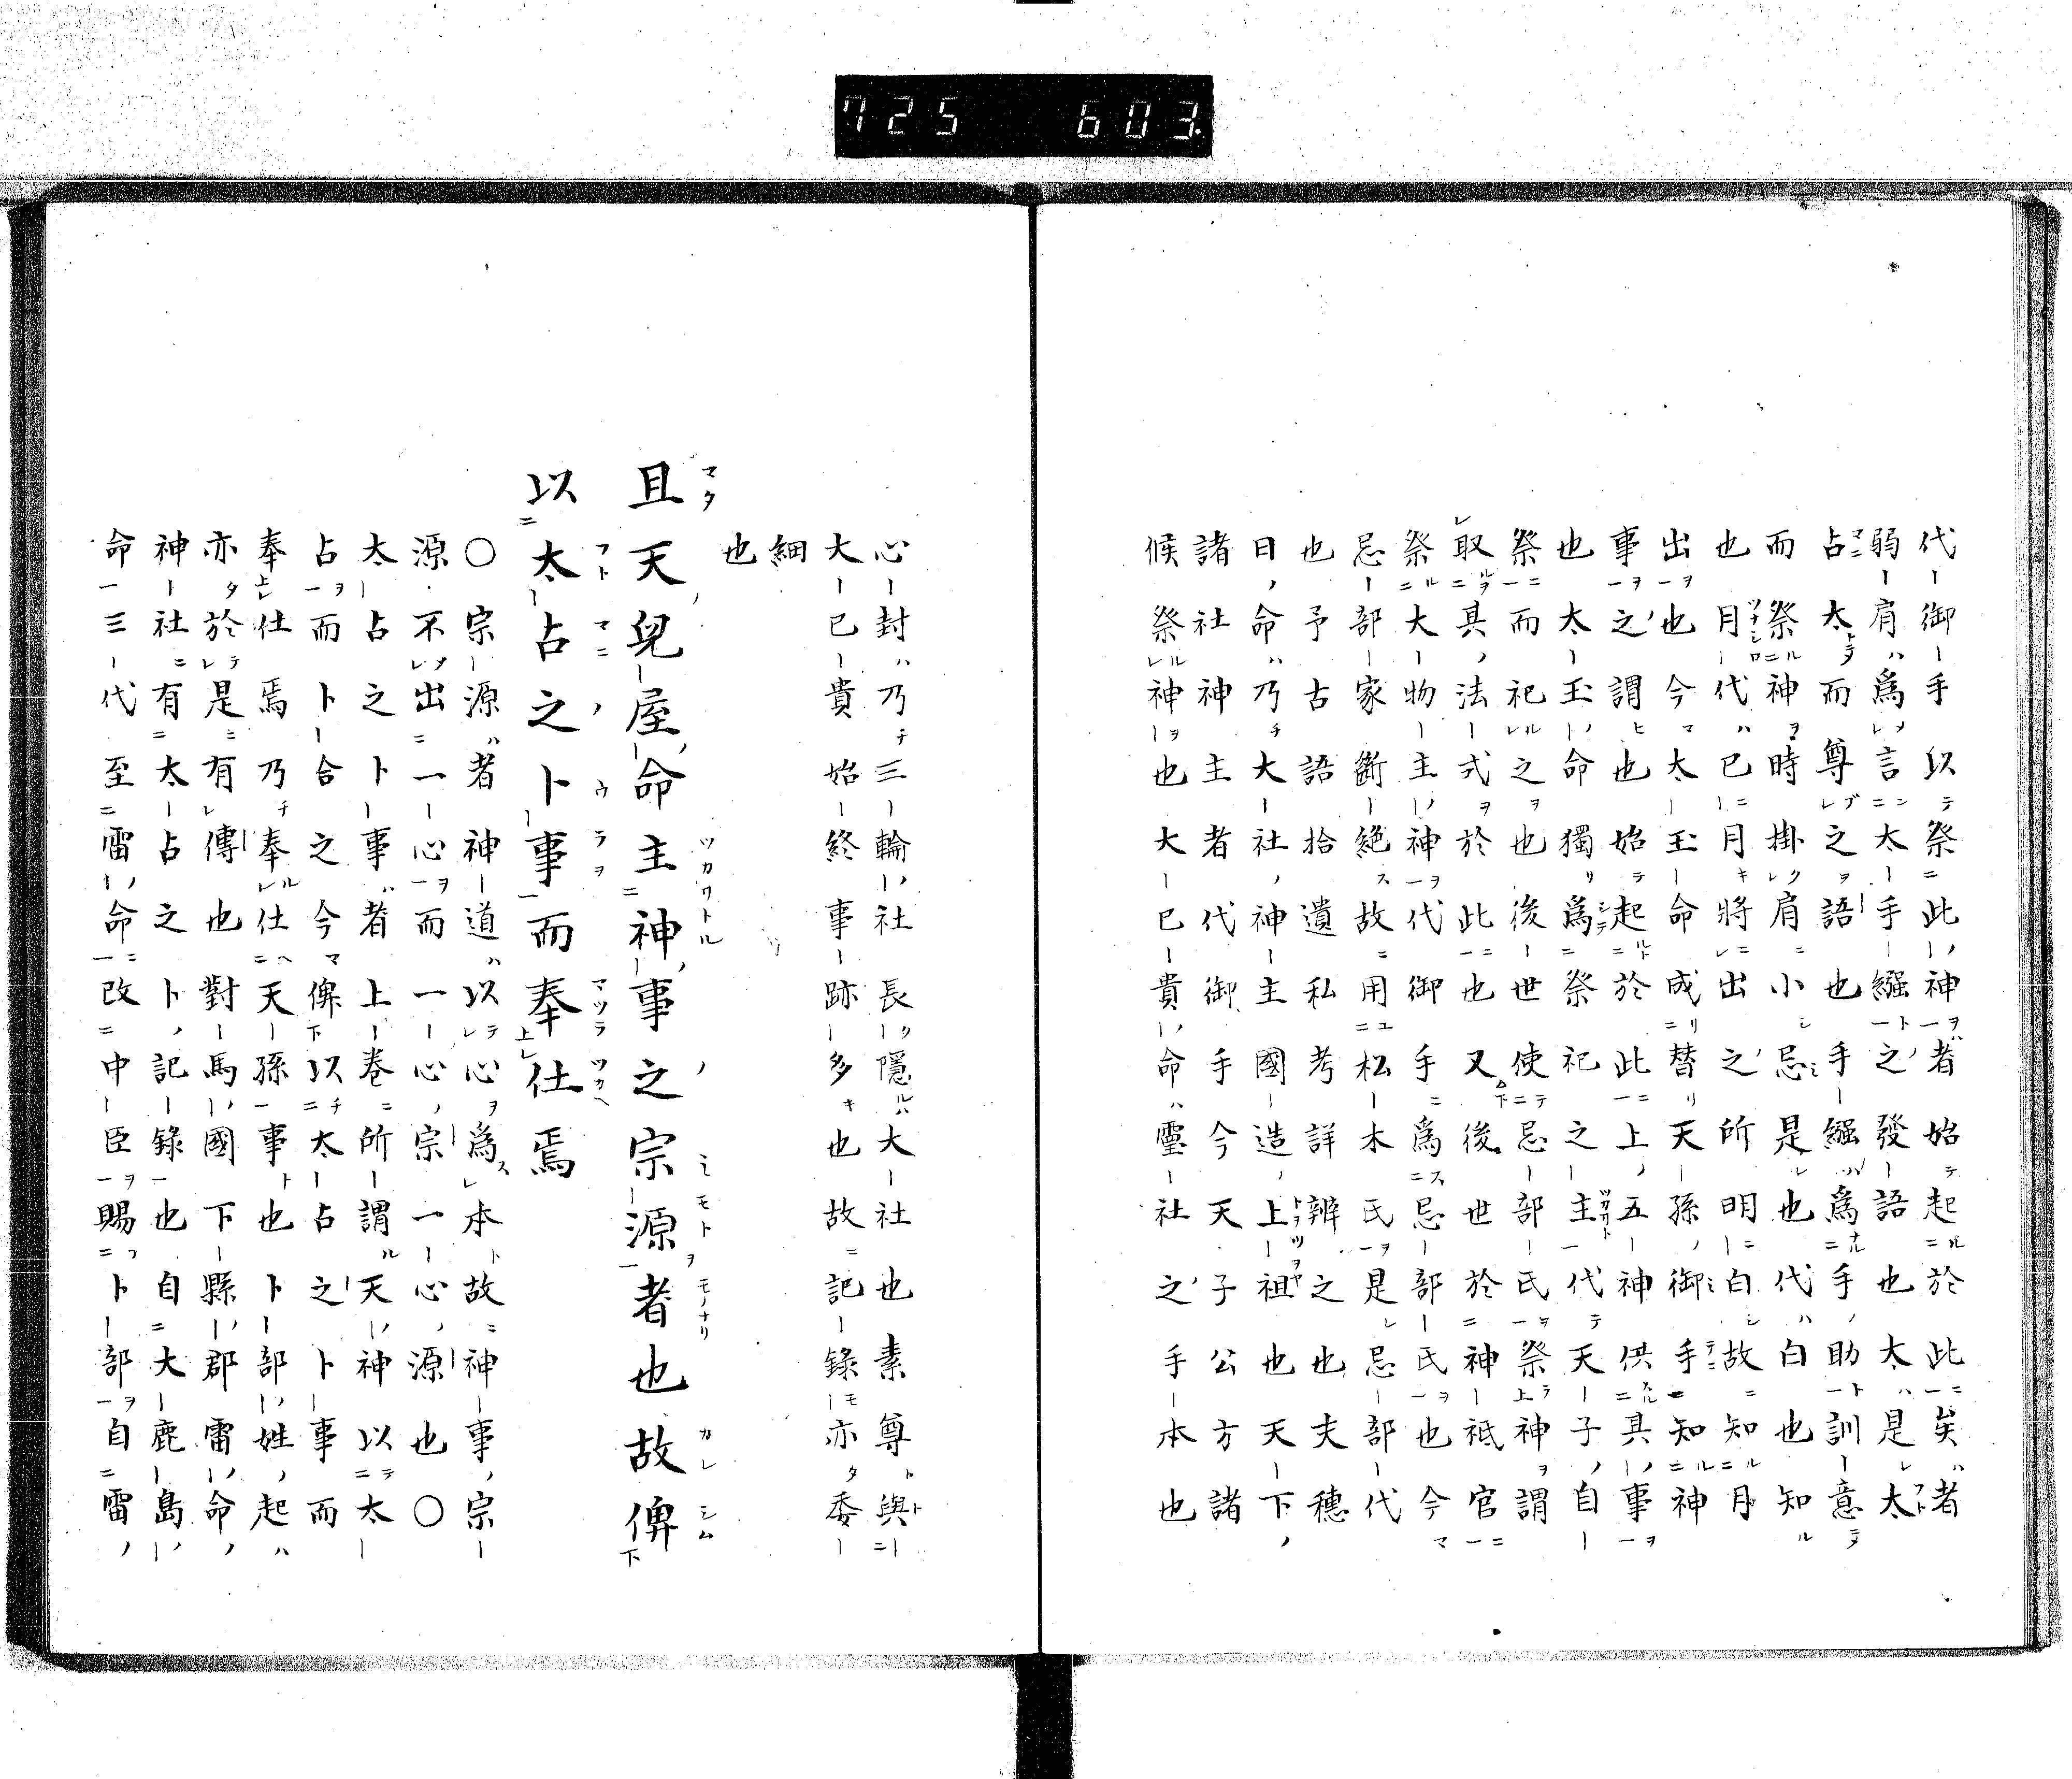 725 603
代御手以祭此神者始起於此矣者
弱肩爲言太手繦之發語也太是太
占太而尊之語也手繦爲手助訓意
而祭神時掛肩小忌是也代白也知
也月代已月將出之所明白故知月
出也今太玉命成替天孫御手知神
事之謂也始起於此上五神供具事
也太玉命獨爲祭祀之主代天子自
祭而祀之也後世使忌部氏祭神謂
取具法式於此也又後世於神祇官
祭大物主神代御手爲忌部氏也今
忌部家斷絶故用松木氏是忌部代
也予古語拾遺私考詳辨之也夫穗
日命乃大社神主國造上祖也天下
諸社神主者代御手今天子公方諸
候祭神也大已貴命靈社之手本也
心封乃三輪社長隱大社也素尊與
大已貴始終事跡多也故記錄亦委
細
也
且天兒屋命主神事之宗源者也故俾
以太占之卜事而奉仕焉
〇宗源者神道以心爲本故神事宗
源不出一心而一心宗一心源也〇
太占之卜事者上卷所謂天神以太
占而卜合之今俾以太占之卜事而
奉仕焉乃奉仕天孫事也卜部姓起
亦於是有傳也對馬國下縣郡雷命
神社有太占之卜記錄也自大鹿島
命三代至雷命改中臣賜卜部自雷